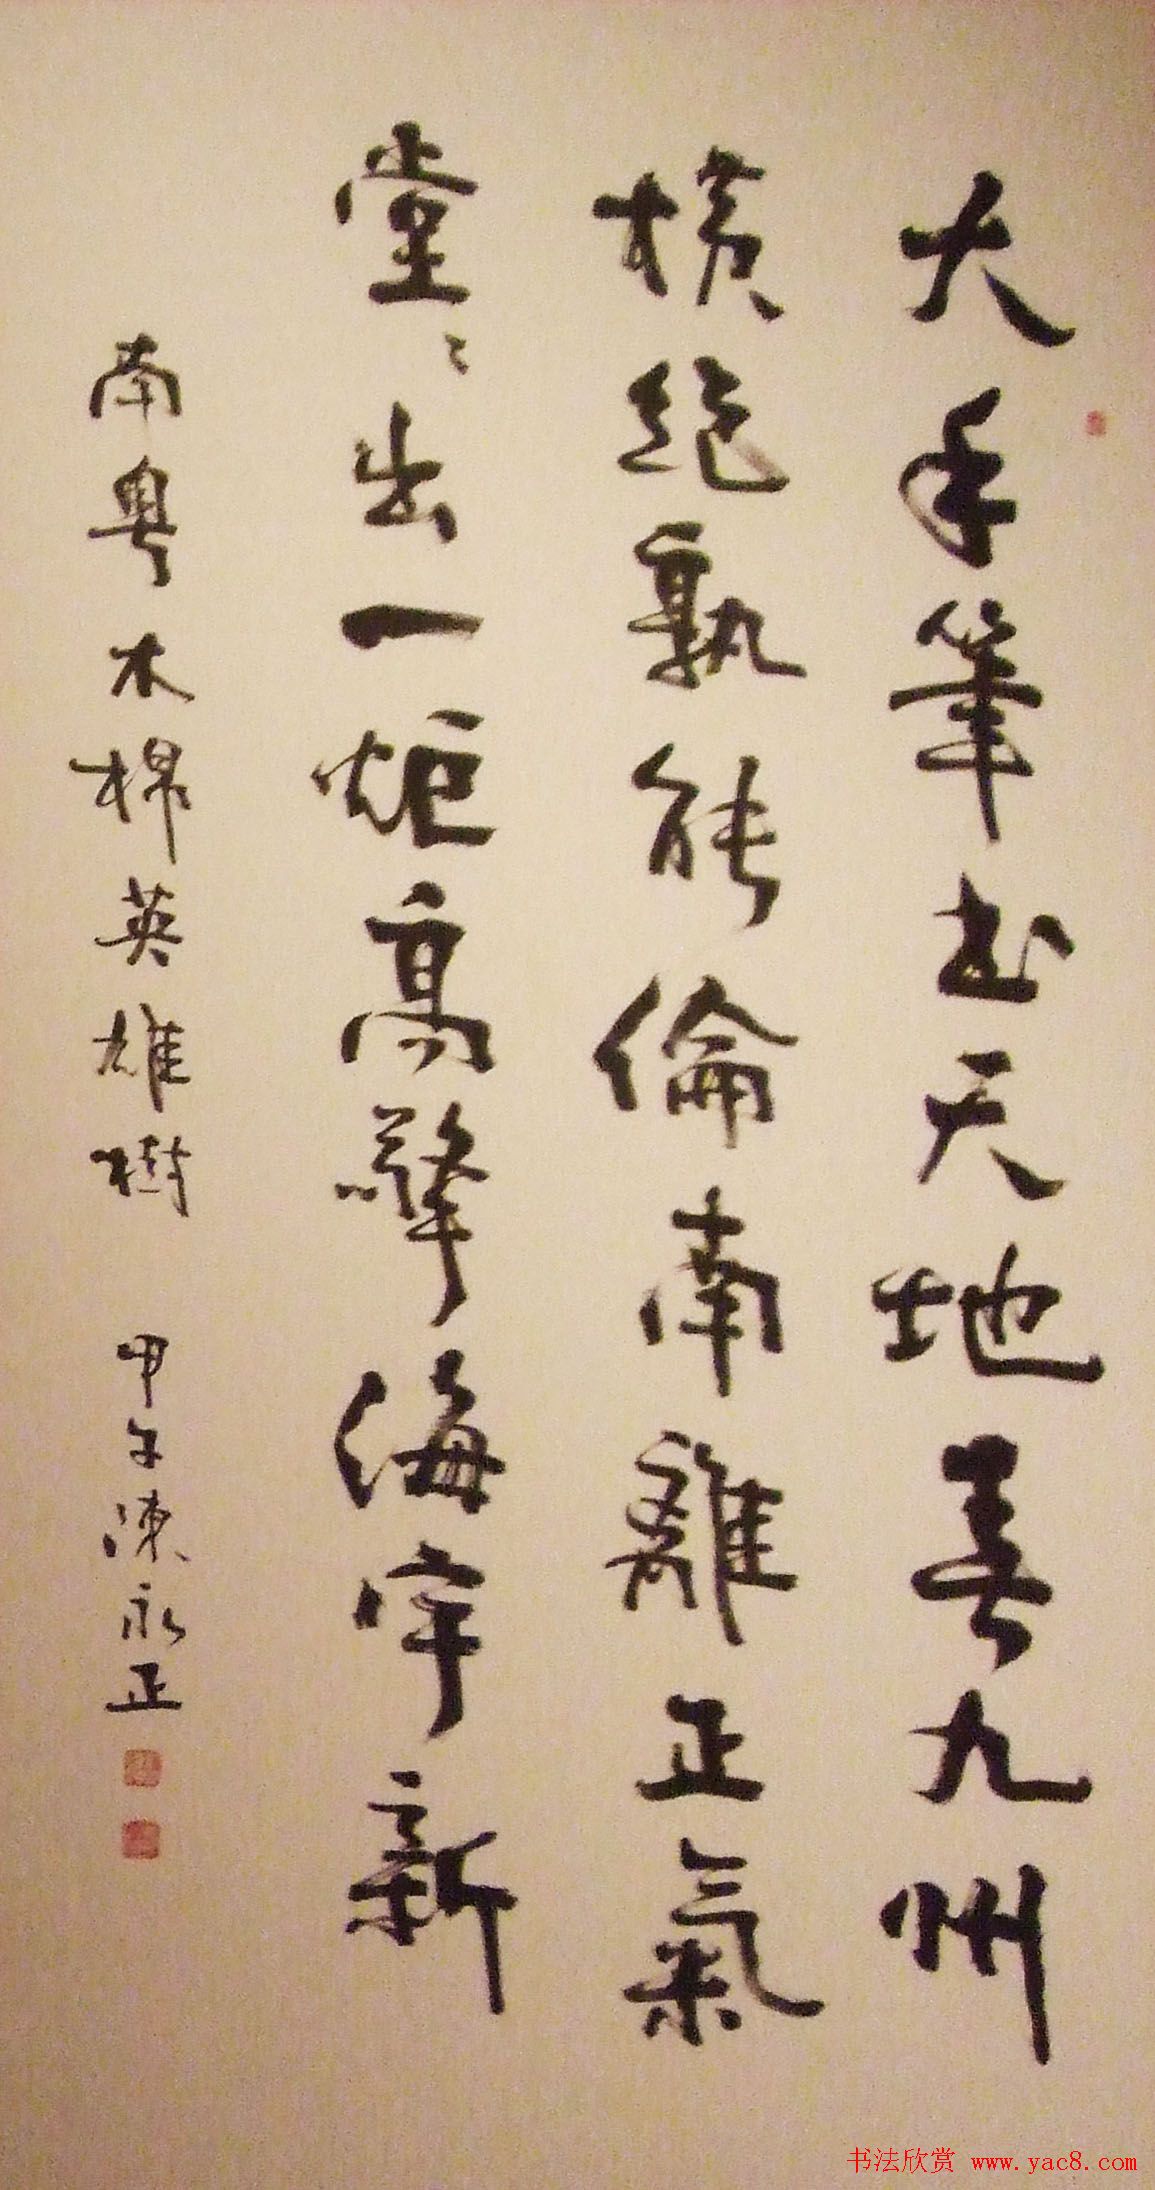 大手筆書天地春九州
橫絕孰能倫南離正氣
堂〻出一炬高擎海宇新
南粵木棉英雄樹 甲午陳永正
书法欣赏 www.yac8.com